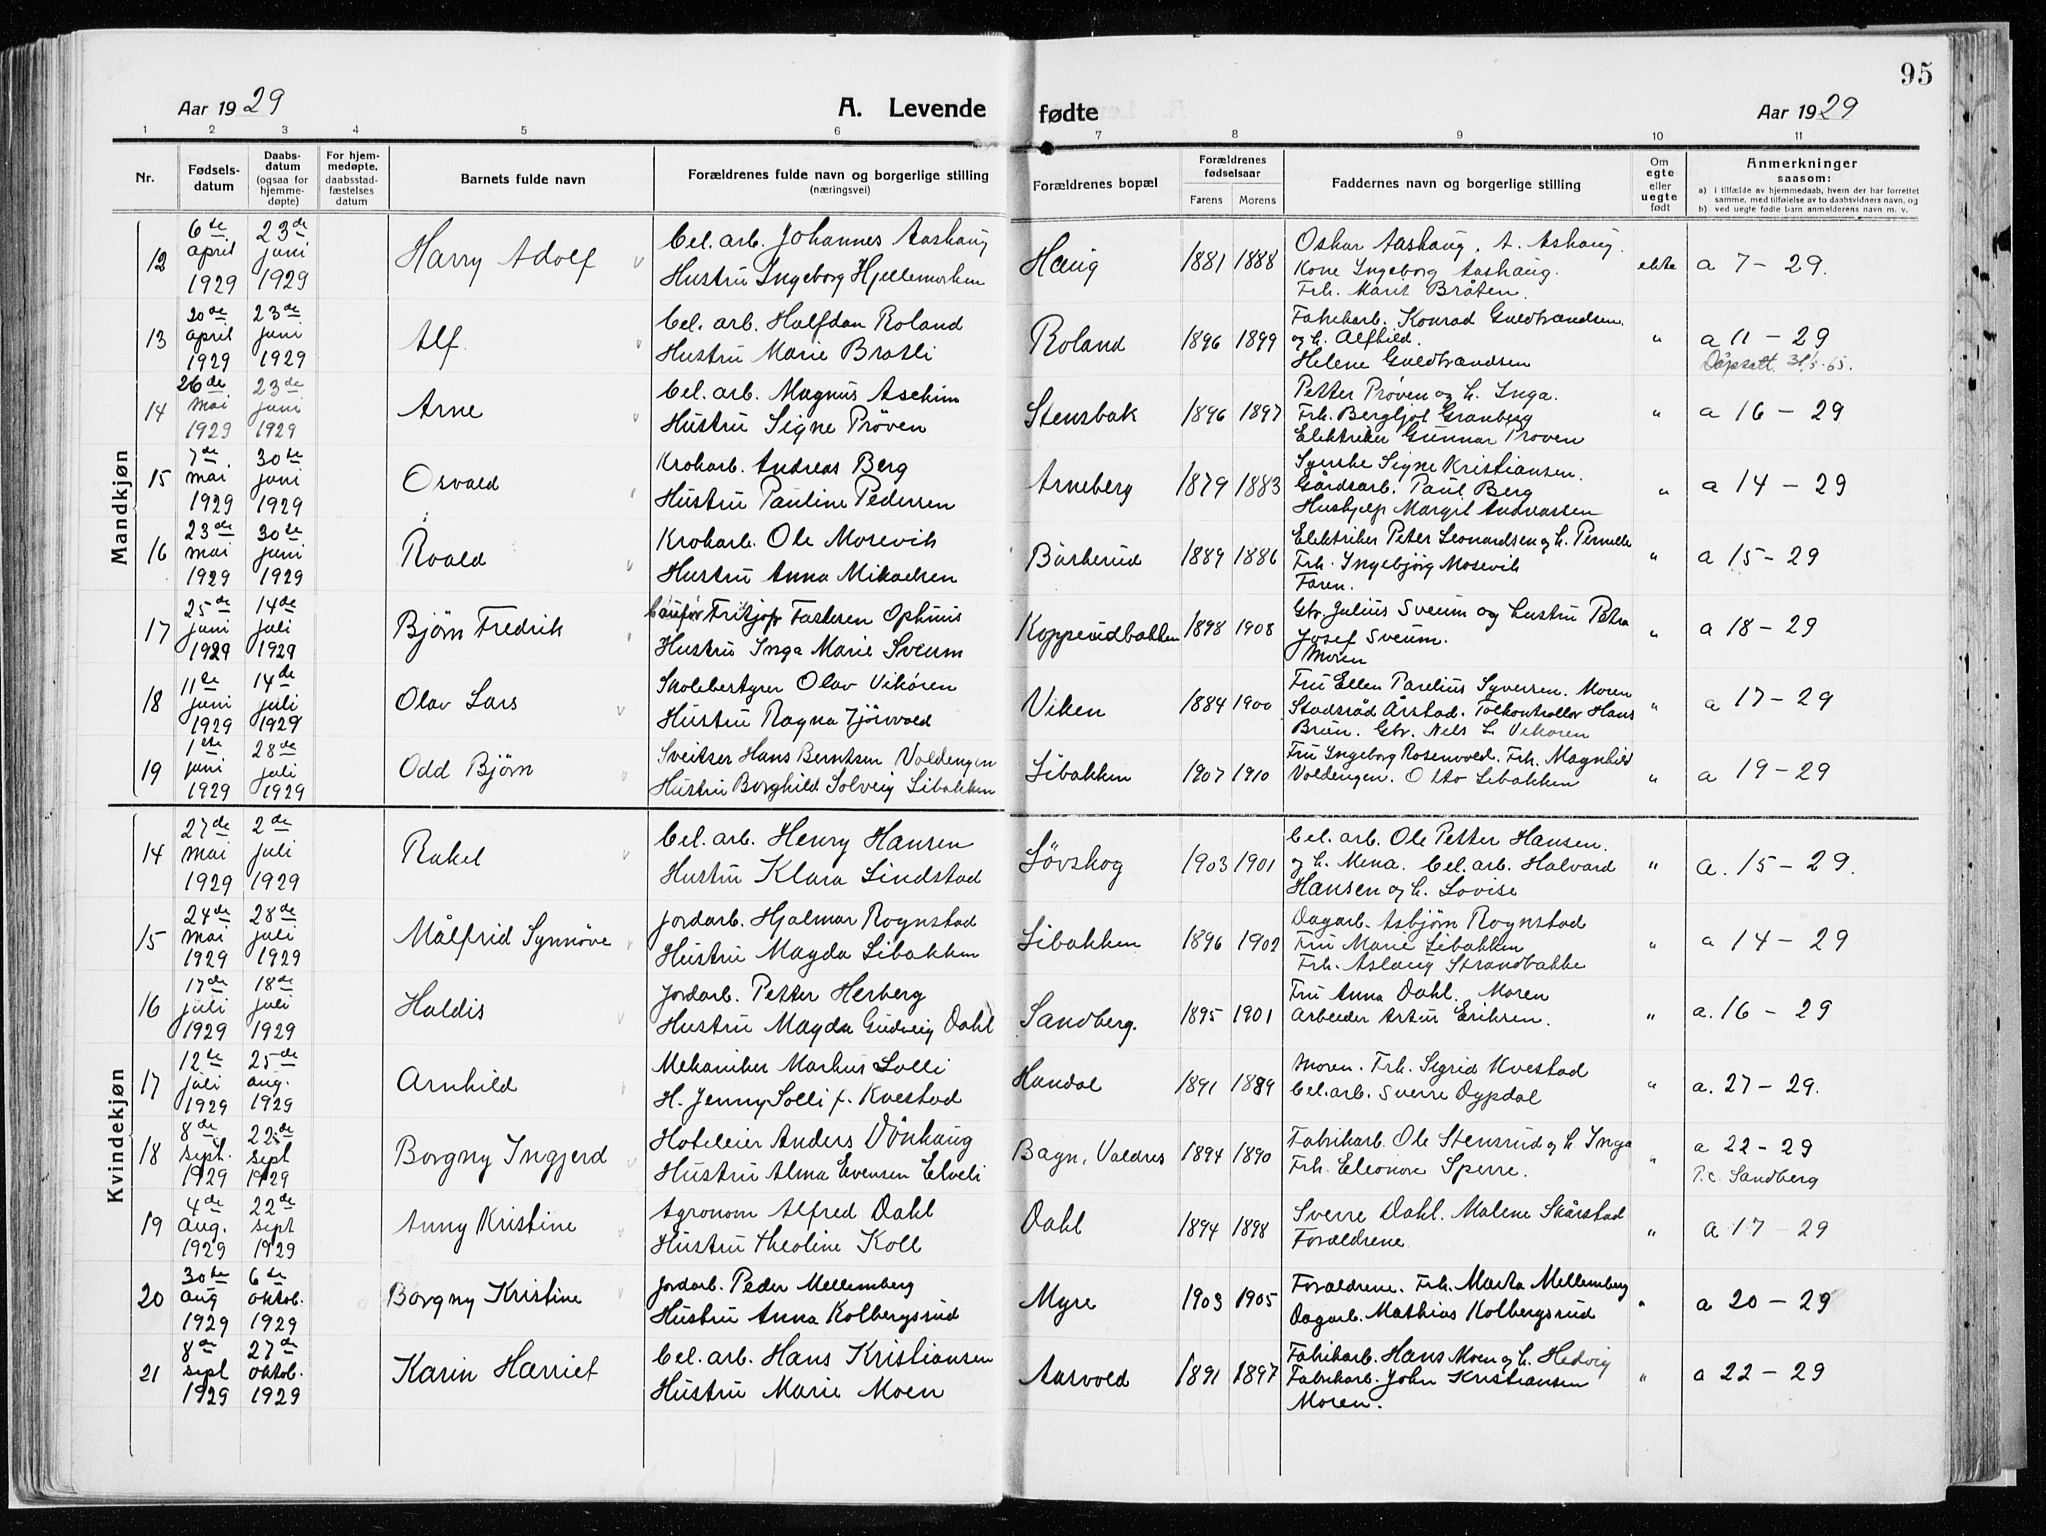 95
Aar 1929
A. Levende fødte
Aar 1929
1 2 3 4 5 6 7 8 9 10 11
Nr.
Fødsels-
datum
Daabs-
datum
(ogsaa for
hjemme-
døpte)
For hjem-
medøpte,
daabsstad-
fæstelses
datum
Barnets fulde navn
Forældrenes fulde navn og borgerlige stilling
(næringsvei)
Forældrenes bopæl
Forældrenes
fødselsaar
Farens Morens
Faddernes navn og borgerlige stilling
Om
egte
eller
uegte
født
Anmerkninger
saasom:
a) i tilfælde av hjemmedaab, hvem der har forrettet
samme, med tilføielse av to daabsvidners navn, og
b) ved uegte fødte barn anmelderens navn m. v.
Mandkjøn
12
6te april 1929
23de juni 1929
Harry Adolf
Cel. arb. Johannes Aashaug
Hustru Ingeborg Hjellemorken
Haug
1881 1888
Oskar Aashaug. A. Ashaug.
Kone Ingeborg Aashaug.
Frk. Marit Bråten.
ekte
a 7 - 29.
13
20de april 1929
23de juni 1929
Alf.
Cel. arb. Halfdan Roland
Hustru Marie Bratli
Roland
1896 1899
Fabrikarb. Konrad Guldbrandsen.
og h. Alfhild.
Helene Guldbrandsen
"
a 11 - 29
Dåpsatt. 31/5-65.
14
26de mai 1929
23de juni 1929
Arne
Cel. arb. Magnus Aschim
Hustru Signe Prøven
Stensbak
1896 1897
Petter Prøven og h. Inga.
Frk. Bergljot Granberg
Elektriker Gunnar Prøven
"
a 16 - 29
15
7de mai 1929
30te juni 1929
Osvald
Kroharb. Andreas Berg
Hustru Pauline Pedersen
Arneberg
1879 1883
Syerske Signe Kristiansen.
Gårdsarb. Paul Berg
Hushjelp Margit Andreassen
"
a 14 - 29
16
23de mai 1929
30te juni 1929
Roald
Kroharb. Ole Mosevik
Hustru Anna Mikaelsen
Bårkerud
1889 1886
Elektriker Peter Leonardsen og h. Pernelle
Frk. Ingebjørg Mosevik
Faren.
"
a 15 - 29
17
25de juni 1929
14de juli 1929
Bjørn Fredrik
Caufør Fritjof Fastesen Ophuus
Hustru Inga Marie Sveum
Kopperudbakken
1898 1908
Gbr. Julius Sveum og hustru Petra
Josef Sveum.
Moren
"
a 18 - 29
18
11te juni 1929
14de juli 1929
Olav Lars
Skolebestyrer Olav Vikøren
Hustru Ragna Tjørvold
Viken
1884 1900
Fru Ellen Parelius Syversen. Moren
Stadsråd Årstad. Tolkontrollør Hans
Bruun. Gbr. Nils L. Vikøren
"
a 17 - 29
19
1ste juni 1929
28de juli 1929
Odd Bjørn
Sveitser Hans Berntsen Voldengen
Hustru Borghild Solveig Libakken
Libakken
1907 1910
Fru Ingeborg Rosenvold. Frk. Magnhild
Voldengen. Otto Libakken
"
a 19 - 29
Kvindekjøn
14
27de mai 1929
2de juli 1929
Rakel
Cel. arb. Henry Hansen
Hustru Klara Lindstad
Løvskog
1903 1901
Cel. arb. Ole Petter Hansen.
og h. Mena. Cel. arb. Halvard
Hansen og h. Lovise
"
a. 15 - 29.
15
24de mai 1929
28de juli 1929
Målfrid Synnøve
Jordarb. Hjalmar Rognstad
Hustru Magda Libakken
Libakken
1896 1902
Dagarb. Asbjørn Rognstad
Fru Marie Libakken
Frk. Aslaug Strandbakke
"
a 14 - 29
16
17de juli 1929
18de juli 1929
Haldis
Jordarb. Petter Herberg
Hustru Magda Gudveig Dahl
Sandberg.
1895 1901
Fru Anna Dahl. Moren
Arbeider Artur Eriksen.
"
a. 16 - 29
17
12te juli 1929
25de aug. 1929
Arnhild
Mekaniker Markus Solli
H. Jenny Solli f. Kvestad
Handal
1891 1889
Moren. Frk. Sigrid Kvestad
Cel. arb. Sverre Dypdal
"
a. 27 - 29.
18
8de sept. 1929
22de sept 1929
Borgny Ingjerd
Hoteleier Anders Vønhaug
Hustru Alma Evensen Elveli
Bagn, Valdres
1894 1890
Fabrikarb. Ole Stensrud og h. Inga
Frk. Eleonore Sperre.
"
a 22 - 29
P.c. Sandberg
19
4de aug. 1929
22de sept 1929
Anny Kristine
Agronom Alfred Dahl
Hustru Theoline Koll
Dahl
1894 1898
Sverre Dahl. Malene Skårstad
Forældrene
"
a 17 - 29
20
30te aug 1929
6te oktob. 1929
Borgny Kristine
Jordarb. Peder Mellemberg
Hustru Anna Kolbergsrud
Myre
1903 1905
Forældrene. Frk. Marta Mellemberg
Dagarb. Mathias Kolbergsrud
"
a 20 - 29
21
8de sept 1929
27de oktob. 1929
Karin Harriet
Cel. arb. Hans Kristiansen
Hustru Marie Moen
Aasvold
1891 1897
Fabrikarb. Hans Moen og h. Hedvig
Fabrikarb. John Kristiansen
Moren.
"
a 22 - 29